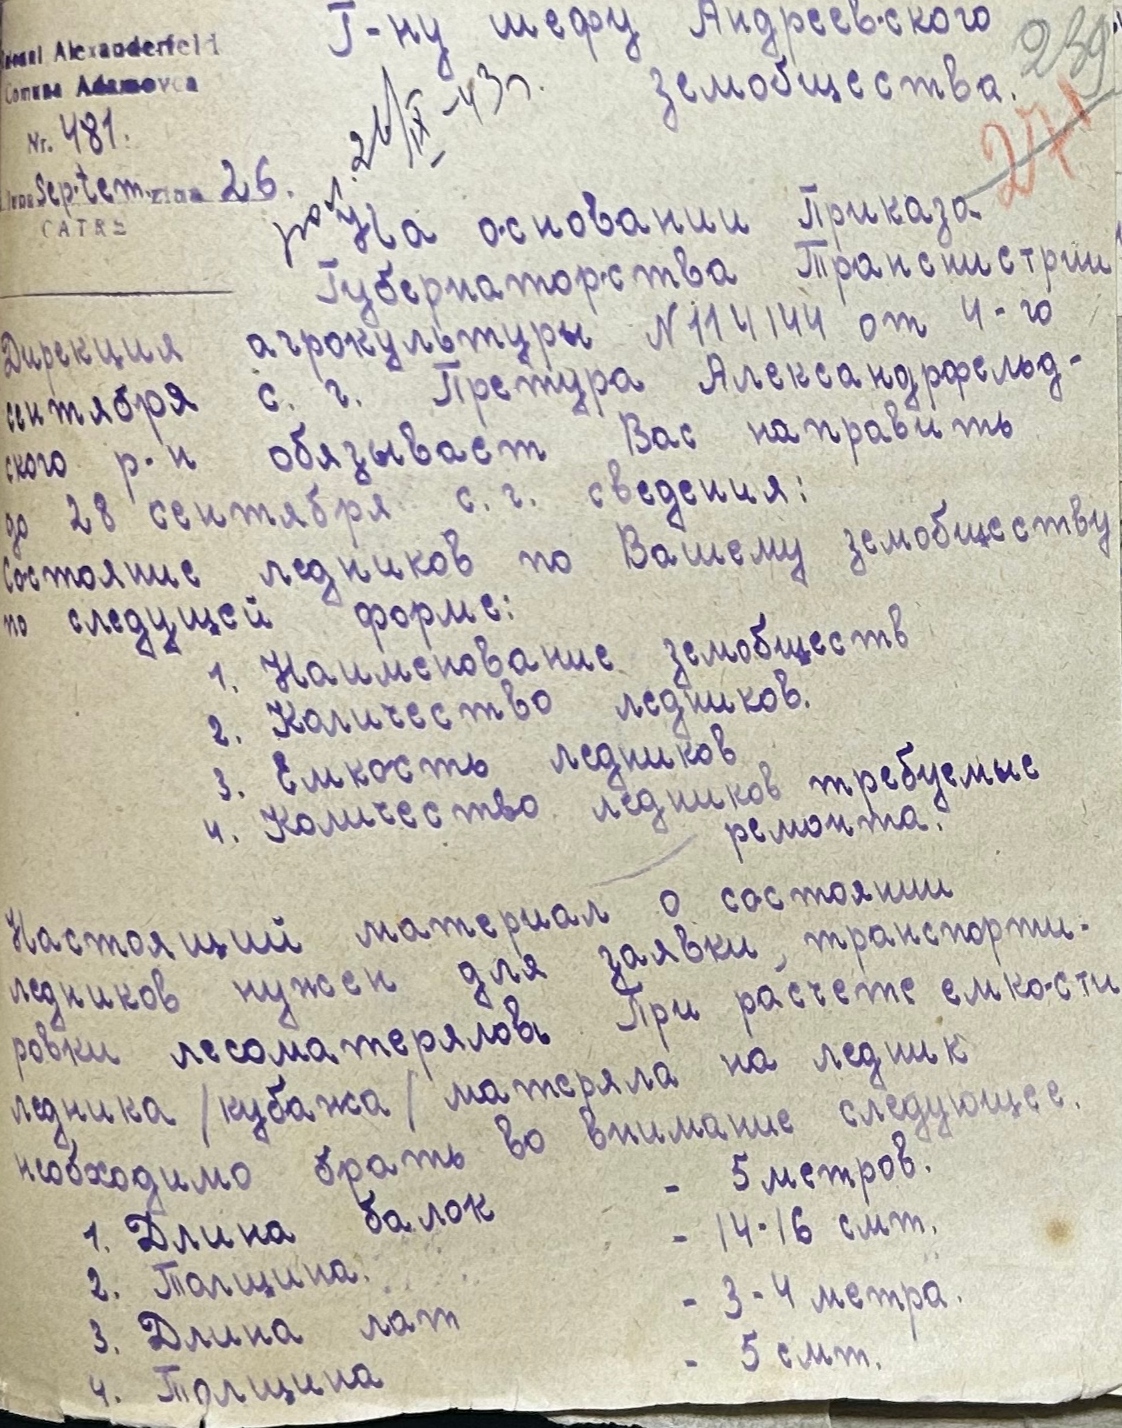 Alexanderfeld
Comuna Adamovca
Nr. 481.
Septem 26.
Г-ну шефу Андреевского
земобщества.
239
271
пол. 26/IX-43г.
На основании Приказа
Губернаторства Транснистрии
Дирекция агрокультуры N 114144 от 4-го
сентября с. г. Претура Александрфельд-
ского р-н обязывает Вас направить
до 28 сентября с. г. сведения:
Состояние ледников по Вашему земобществу
по следущей форме:
1. Наименование земобществ
2. Количество ледников.
3. Емкость ледников
4. Количество ледников требуемые
ремонта.
Настоящий материал о состоянии
ледников нужен для заявки, транспорти-
ровки лесоматерялов. При расчете емкости
ледника /кубажа/ матеряла на ледник
необходимо брать во внимание следующее.
1. Длина балок - 5 метров.
2. Толщина. - 14-16 смт.
3. Длина лат - 3-4 метра.
4. Толщина - 5 смт.